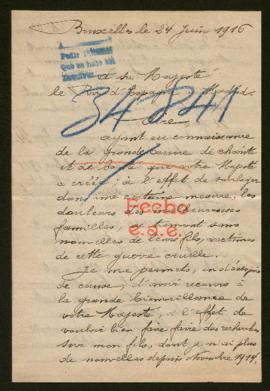 Bruxelles le 24 Juin 1916
A Sa Majesté
le Roi d'Espagne Madrid
34841
Sire
ayant eu connaissance
de la Grande œuvre de charité
et de que votre Majesté
a créée, à l'effet de soulager
dans une certaine mesure, les
douleurs des nombreuses
familles, se trouvant sans
nouvelles de leurs fils, victimes
de cette guerre cruelle.
Fecho
Je me permets,
de cause, d'avoir recours à
la grande bienveillance de
votre Majesté, à l'effet de
vouloir bien faire faire des recherches
sur mon fils, dont je n'ai plus
de nouvelles depuis Novembre 1914